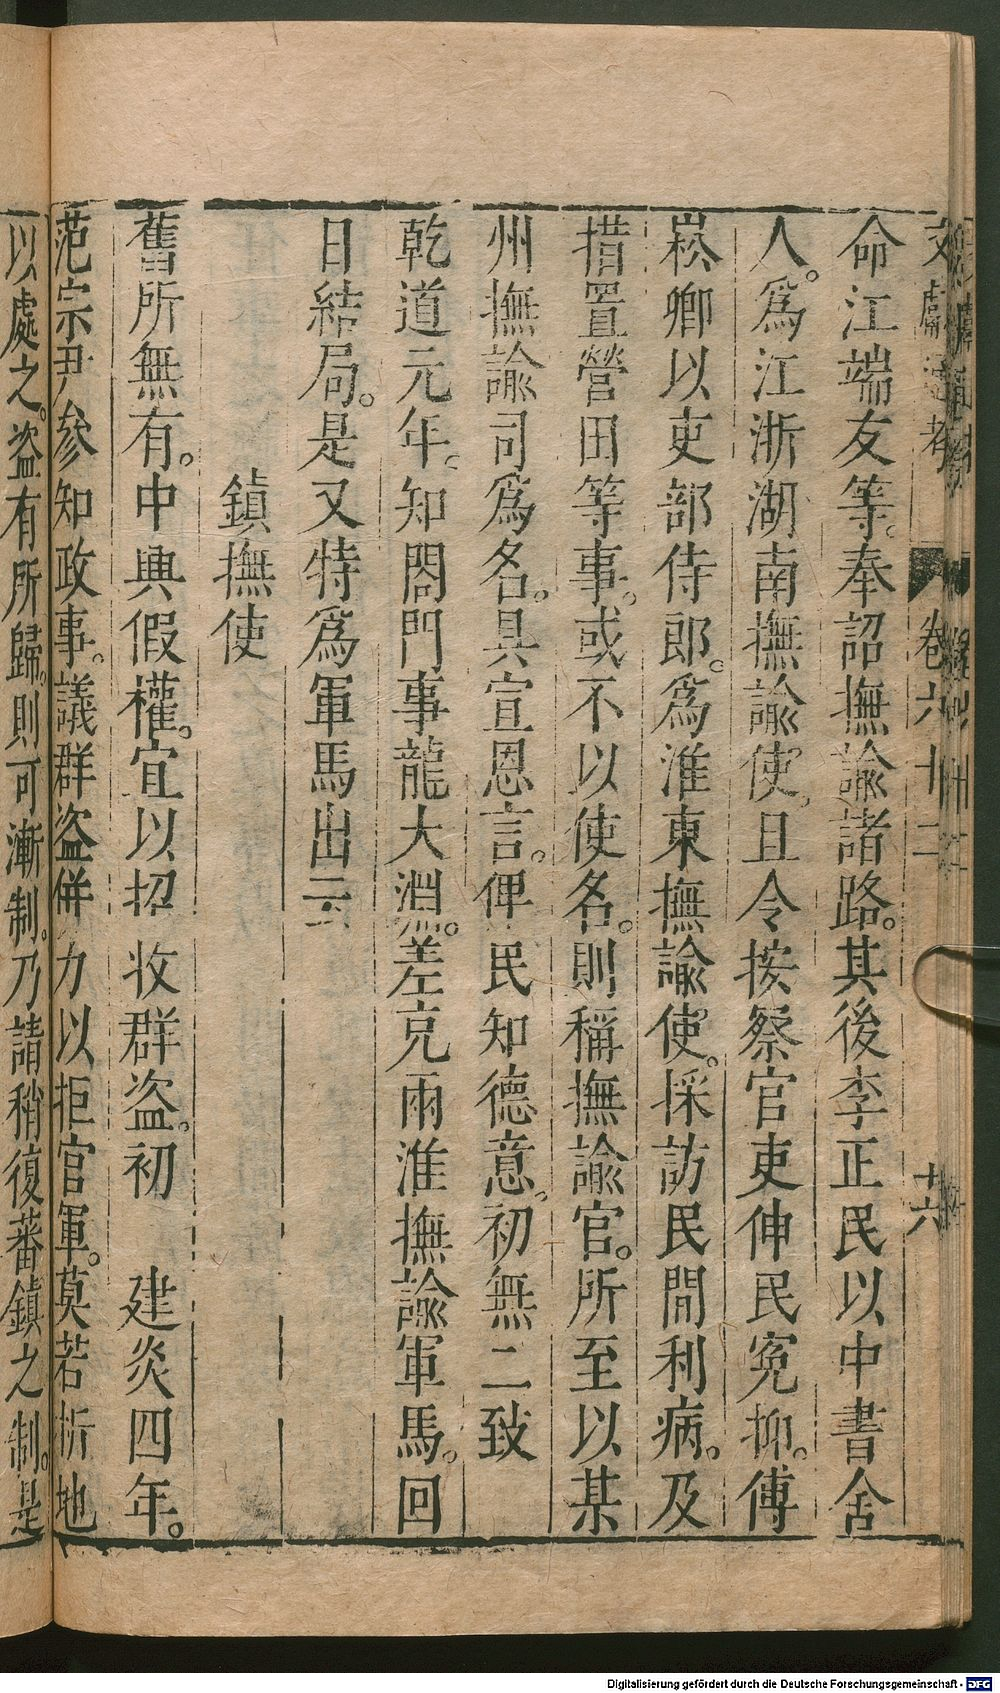 文獻通考 卷六十二 十六
命江端友等。奉詔撫諭諸路。其後李正民以中書舍
人。爲江浙湖南撫諭使。且令按察官吏伸民冤抑。傅
崧卿以吏部侍郎。爲淮東撫諭使。採訪民間利病。及
措置營田等事。或不以使名。則稱撫諭官。所至以某
州撫諭司爲名。具宣恩言。俾民知德意。初無二致
乾道元年。知閤門事龍大淵。差充兩淮撫諭軍馬。回
日結局。是又特爲軍馬出云
鎮撫使
舊所無有。中興假權。宜以招收群盜。初建炎四年。
范宗尹參知政事。議群盜併力以拒官軍。莫若析地
以處之。盜有所歸。則可漸制。乃請稍復蕃鎮之制。是
Digitalisierung gefördert durch die Deutsche Forschungsgemeinschaft - DFG